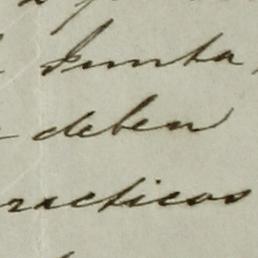 Junta,
deben
racticos